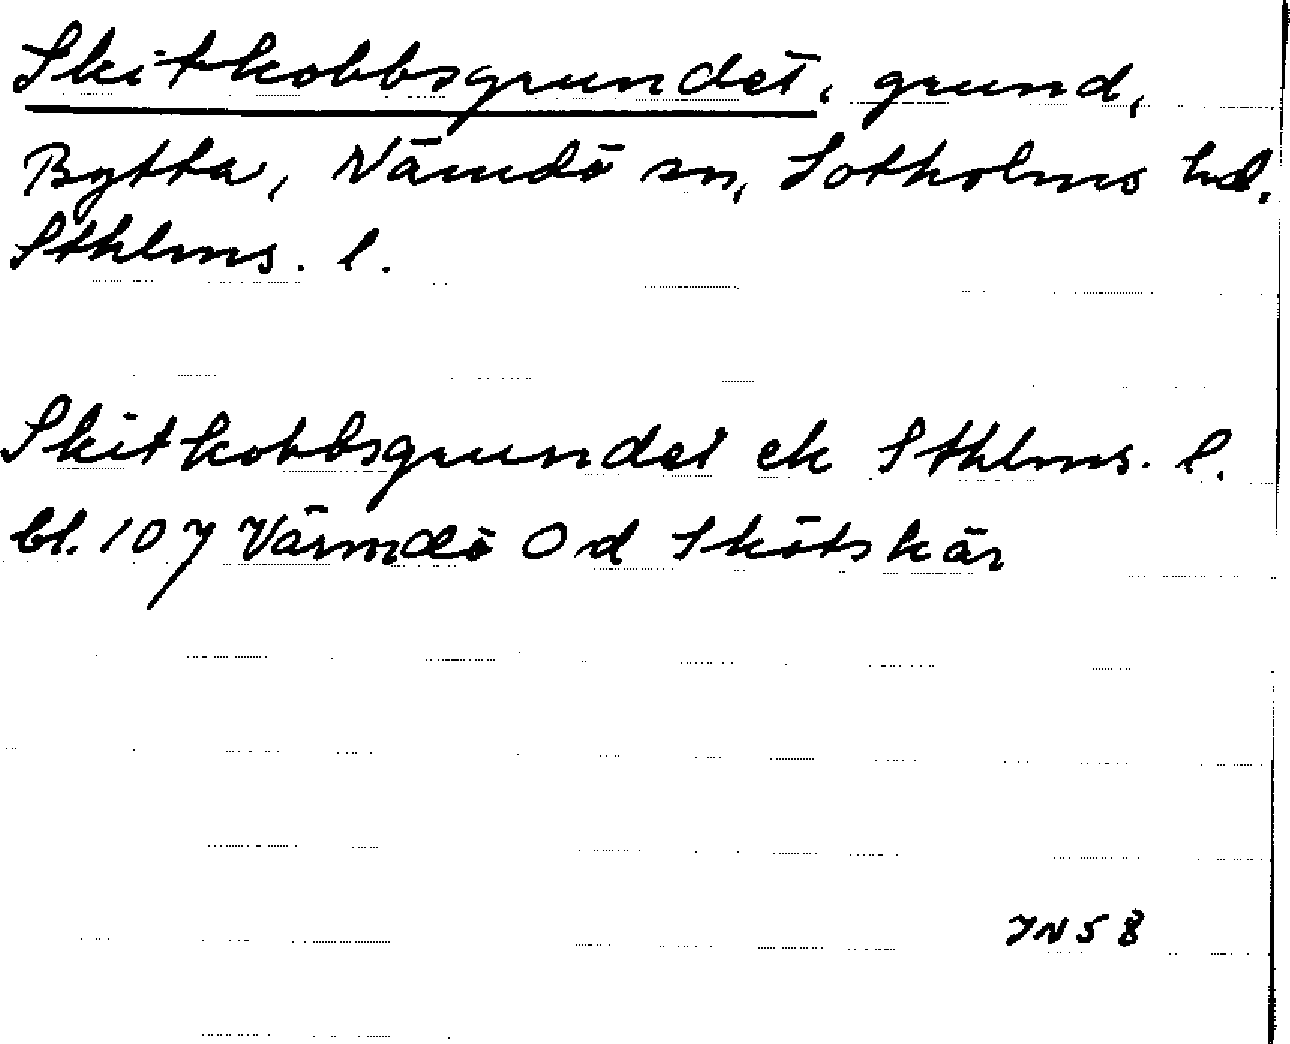 Skitkobbsgrundet, grund,
Bytta, Nämdö sn, Sotholms hd.
Sthlms. l.
Skitkobbsgrundet ek Sthlms. l.
bl. 107 Värmdö Od Skötskär
JN58